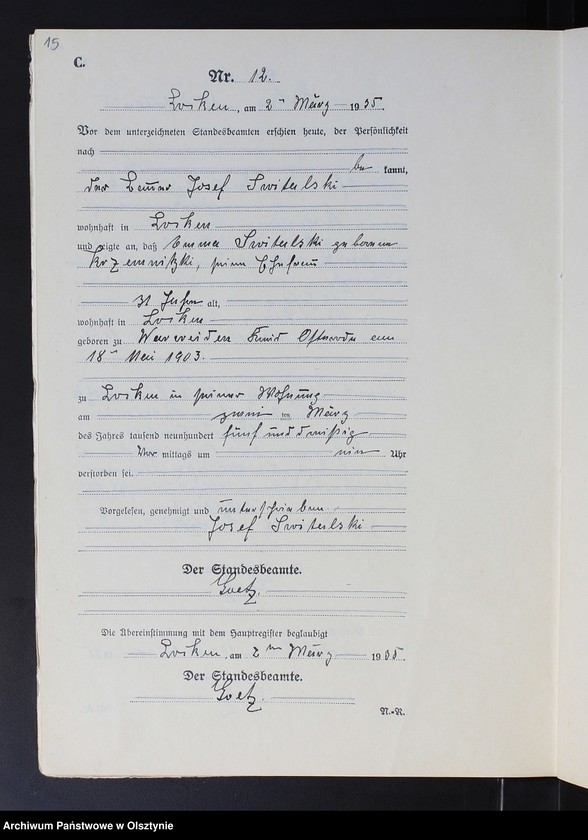 15
C.
Nr. 12.
Locken, am 2ten März 1935.
Vor dem unterzeichneten Standesbeamten erschien heute, der Persönlichkeit
nach
be kannt,
der Josef Switalski
wohnhaft in Locken
und zeigte an, daß Emma Switalski geborene
Krzemnitzki, seine Ehefrau
31 Jahre alt,
wohnhaft in Locken
geboren zu Warweiden Kreis Osterode am
18ten Mai 1903.
zu Locken in seiner Wohnung
am zwei ten März
des Jahres tausend neunhundert fünf und dreißig
Vor mittags um ein Uhr
verstorben sei.
Vorgelesen, genehmigt und unterschrieben
Josef Switalski
Der Standesbeamte.
Goetz.
Die Übereinstimmung mit dem Hauptregister beglaubigt
Locken, am 2ten März 1935.
Der Standesbeamte.
Goetz.
N.-R.
Archiwum Państwowe w Olsztynie